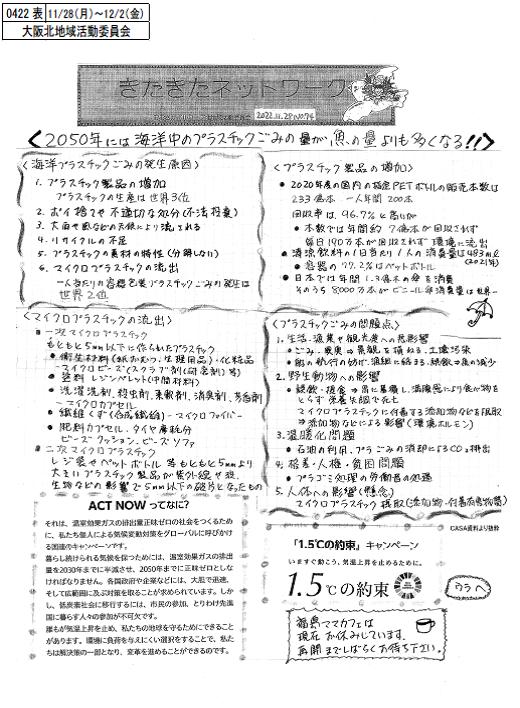 0422 表 11/28(月)～12/2(金)
大阪北地域活動委員会
きたきたネットワーク
2022.11.28 No94
<2050年には海洋中のプラスチックごみの量が魚の量よりも多くなる!!>
<海洋プラスチックごみの発生原因>
1. プラスチック製品の増加
プラスチックの生産は世界3位
2. ポイ捨てや不適切な処分(不法投棄)
3. 大雨や風などの天候により流される
4. リサイクルの不足
5. プラスチックの素材の特性(分解しない)
6. マイクロプラスチックの流出
一人当たりの容器包装プラスチックごみの発生は
世界2位
<プラスチック製品の増加>
• 2020年度の国内の指定PETボトルの販売本数は
233億本 一人年間200本
回収率は、96.7%と高いが
• 本数では年間約7億本が回収されず
毎日190万本が回収されず環境に流出
• 清涼飲料の1日当たり1人の消費量は483mℓ
(2021年)
• 容器の77.2%はペットボトル
• 日本では年間1.3億本の傘を消費
そのうち8000万本がビニール傘消費量は世界一
<マイクロプラスチックの流出>
■一次マイクロプラスチック
もともと5mm以下に作られたプラスチック
• 衛生材料(紙おむつ、生理用品)・化粧品
－マイクロビーズ(スクラブ剤(研磨剤)等)
• 塗料 レジンペレット(中間材料)
• 洗濯洗剤、殺虫剤、柔軟剤、消臭剤、芳香剤
－マイクロカプセル
• 繊維くず(合成繊維)－マイクロファイバー
• 肥料カプセル、タイヤ摩耗分
ビーズクッション、ビーズソファ
■二次マイクロプラスチック
レジ袋やペットボトル等もともと5mmより
大きいプラスチック製品が紫外線や波、
生物などの影響で5mm以下の破片となったもの
<プラスチックごみの問題点>
1. 生活、漁業や観光業への悪影響
• ごみ・廃棄⇒景観を損ねる、土壌汚染
2. 野生動物への影響
• 誤飲・誤食⇒胃に蓄積し、満腹感により食べ物を
とらず栄養失調で死亡
マイクロプラスチックに付着する添加物などを摂取
⇒添加物などによる影響(環境ホルモン)
3. 温暖化問題
• 石油の利用、プラごみの消却によるCO2排出
4. 格差・人権・貧困問題
• プラゴミ処理の労働者の処遇
5. 人体への影響(懸念)
マイクロプラスチック摂取(添加物・付着有害物質)
CASA資料より抜粋
ACT NOW ってなに?
それは、温室効果ガスの排出量正味ゼロの社会をつくるため
に、私たち個人による気候変動対策をグローバルに呼びかけ
る国連のキャンペーンです。
暮らし続けられる気候を保つためには、温室効果ガスの排出
量を2030年までに半減させ、2050年までに正味ゼロとしな
ければなりません。各国政府や企業などには、大胆で迅速、
そして広範囲に及ぶ対策を取ることが求められています。しか
し、低炭素社会に移行するには、市民の参加、とりわけ先進
国に暮らす人々の参加が不可欠です。
誰もが気温上昇を止め、私たちの地球を守るためにできること
があります。環境に負荷を与えにくい選択をすることで、私た
ちは解決策の一部となり、変革を進めることができるのです。
「1.5℃の約束」キャンペーン
いますぐ動こう、気温上昇を止めるために。
1.5℃の約束
ウラへ
福島ママカフェは
現在お休みしています。
再開までしばらくお待ち下さい。